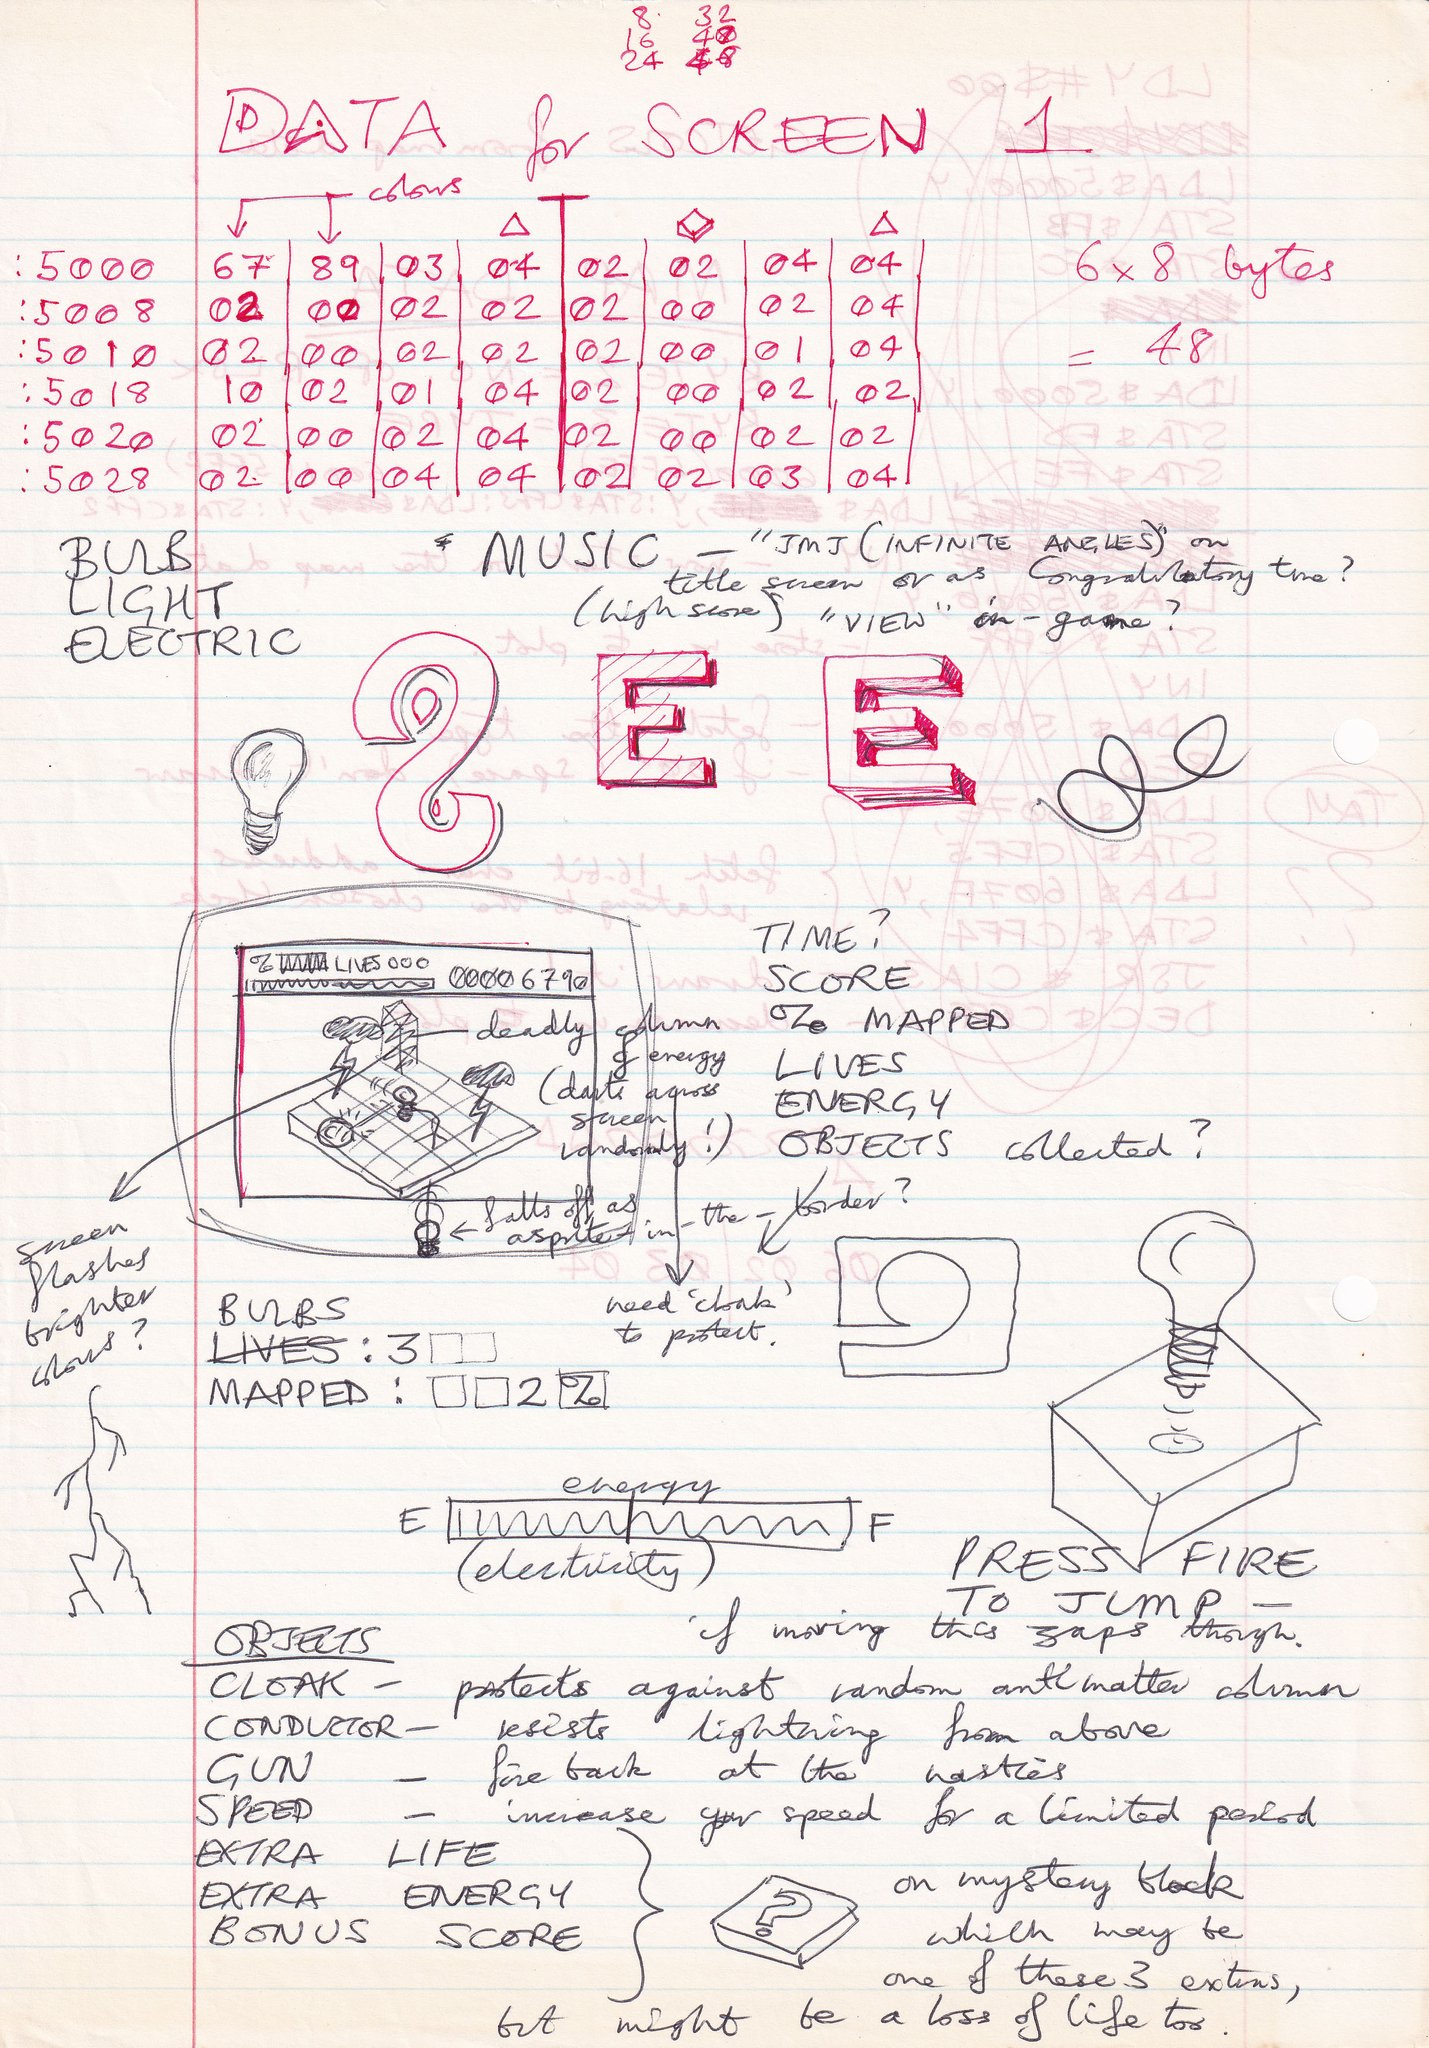 8 32
16 40
24 48
DATA for SCREEN 1
colours
:5000 67 89 03 04 02 02 04 04
:5008 02 00 02 02 02 00 02 04
:5010 02 00 02 02 02 00 01 04
:5018 10 02 01 04 02 00 02 02
:5020 02 00 02 04 02 00 02 02
:5028 02 00 04 04 02 02 03 04
6 x 8 bytes
= 48
BULB
LIGHT
ELECTRIC
* MUSIC — "JMJ (INFINITE ANGLES)" on
title screen or as Congratulatory tune?
(high score) "VIEW" in-game?
E E
% LIVES 000
00006790
deadly column
of energy
(darts across
screen
randomly!)
falls off as
a sprite-in-the-border?
screen
flashes
brighter
colours?
TIME?
SCORE
% MAPPED
LIVES
ENERGY
OBJECTS collected?
need 'cloak'
to protect.
BULBS
LIVES : 3
MAPPED : 2 %
energy
E F
(electricity)
PRESS FIRE
TO JUMP —
if moving this zaps though.
OBJECTS
CLOAK — protects against random antimatter column
CONDUCTOR — resists lightning from above
GUN — fire back at the nasties
SPEED — increase your speed for a limited period
EXTRA LIFE
EXTRA ENERGY
BONUS SCORE
?
on mystery block
which may be
one of these 3 extras,
but might be a loss of life too.